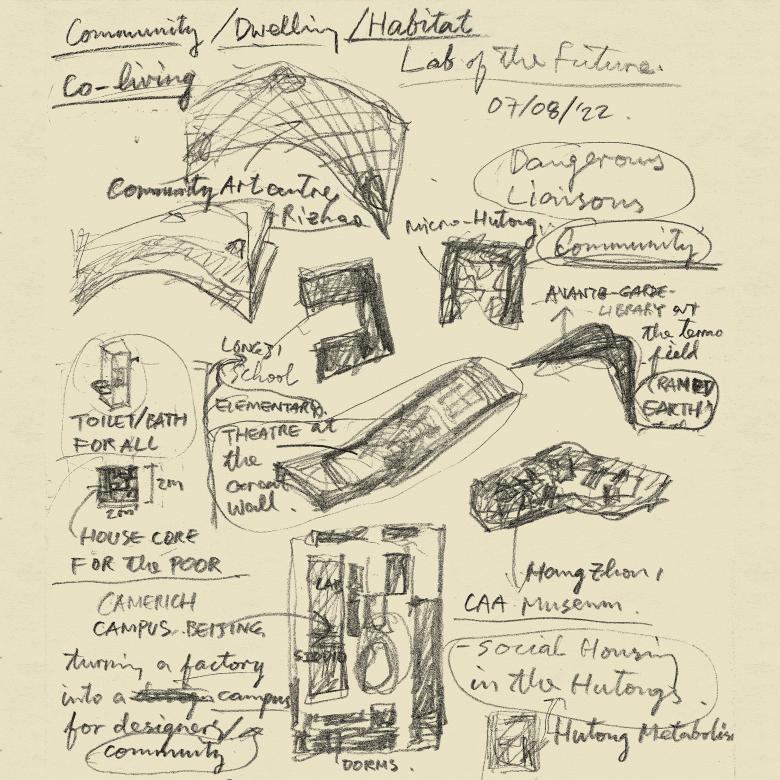 Community /Dwelling /Habitat
Co-living
Lab of the Future.
07/08/'22.
Dangerous
Liaisons
Community Art centre
- Rizhao
Micro-Hutong
Community
AVANTE-GARDE-
LIBRARY at
the terno
field
(RAMED
EARTH)
LONGJI
School
ELEMENTARY.
THEATRE at
the
Great
Wall.
TOILET/BATH
FOR ALL
2m
2m
HOUSE CORE
FOR the POOR
HangZhou,
CAA Museum.
CAMERICH
CAMPUS. BEIJING.
LAB
STUDIO
turning a factory
into a campus
for designers/a
community
DORMS.
- Social Housing
in the Hutongs.
Hutong Metabolism